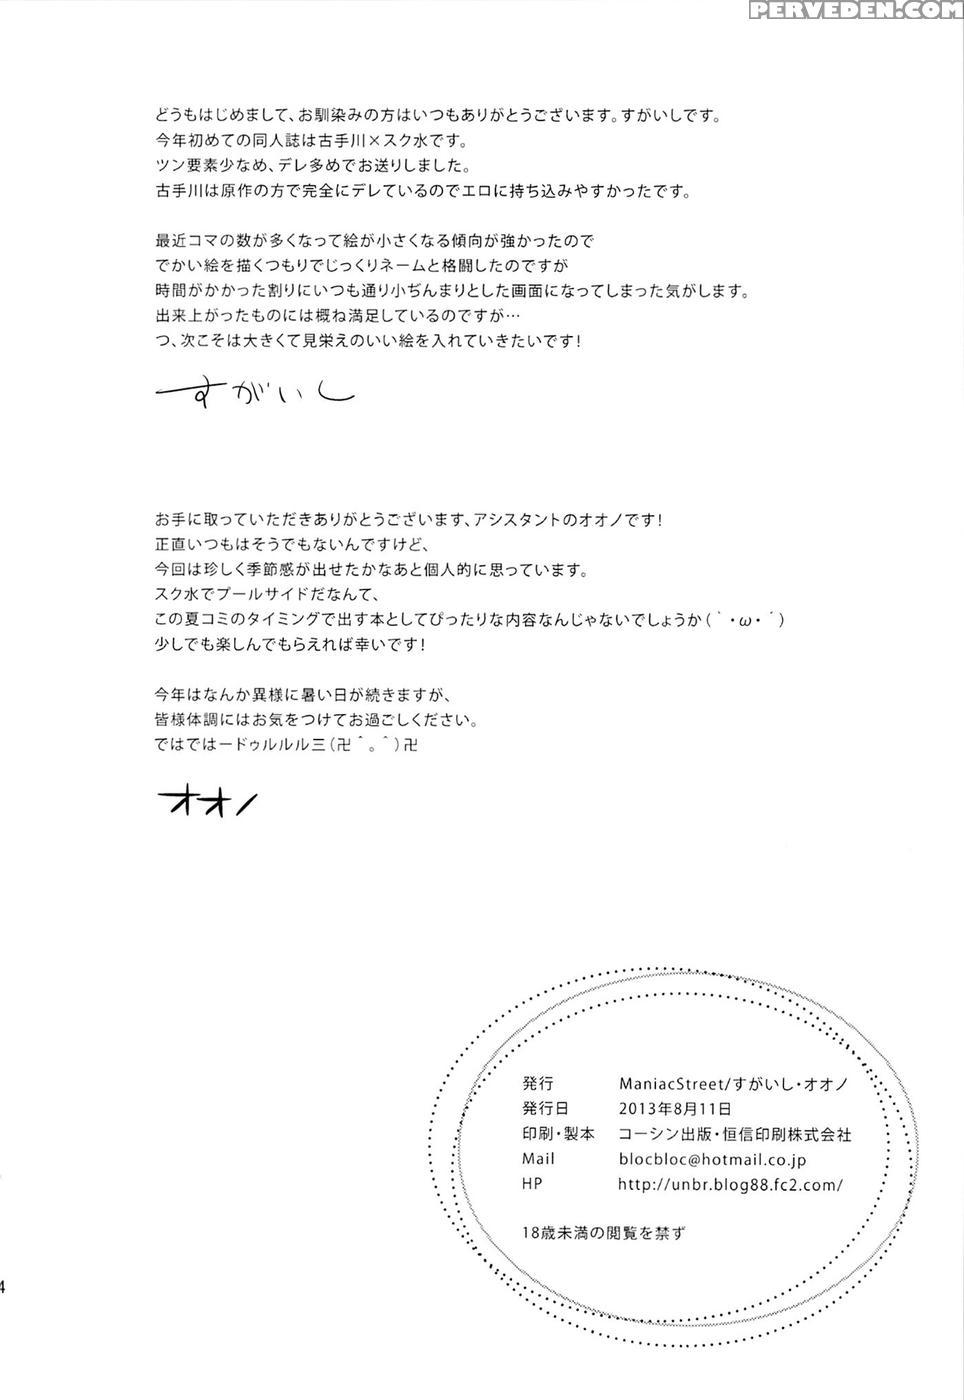 PERVEDEN.COM
どうもはじめまして、お馴染みの方はいつもありがとうございます。すがいしです。
今年初めての同人誌は古手川×スク水です。
ツン要素少なめ、デレ多めでお送りしました。
古手川は原作の方で完全にデレているのでエロに持ち込みやすかったです。
最近コマの数が多くなって絵が小さくなる傾向が強かったので
でかい絵を描くつもりでじっくりネームと格闘したのですが
時間がかかった割りにいつも通り小ぢんまりとした画面になってしまった気がします。
出来上がったものには概ね満足しているのですが…
つ、次こそは大きくて見栄えのいい絵を入れていきたいです!
すがいし
お手に取っていただきありがとうございます、アシスタントのオオノです!
正直いつもはそうでもないんですけど、
今回は珍しく季節感が出せたかなあと個人的に思っています。
スク水でプールサイドだなんて、
この夏コミのタイミングで出す本としてぴったりな内容なんじゃないでしょうか(｀・ω・´)
少しでも楽しんでもらえれば幸いです!
今年はなんか異様に暑い日が続きますが、
皆様体調にはお気をつけてお過ごしください。
ではではードゥルルル三(卍＾。＾)卍
オオノ
発行 ManiacStreet/すがいし・オオノ
発行日 2013年8月11日
印刷・製本 コーシン出版・恒信印刷株式会社
Mail blocbloc@hotmail.co.jp
HP http://unbr.blog88.fc2.com/
18歳未満の閲覧を禁ず
4